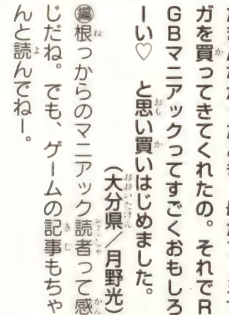 ガを買ってきてくれたの。それでR
GBマニアックってすごくおもしろ
ーい♡ と思い買いはじめました。
(大分県/月野光)
編根っからのマニアック読者って感
じだね。でも、ゲームの記事もちゃ
んと読んでねー。